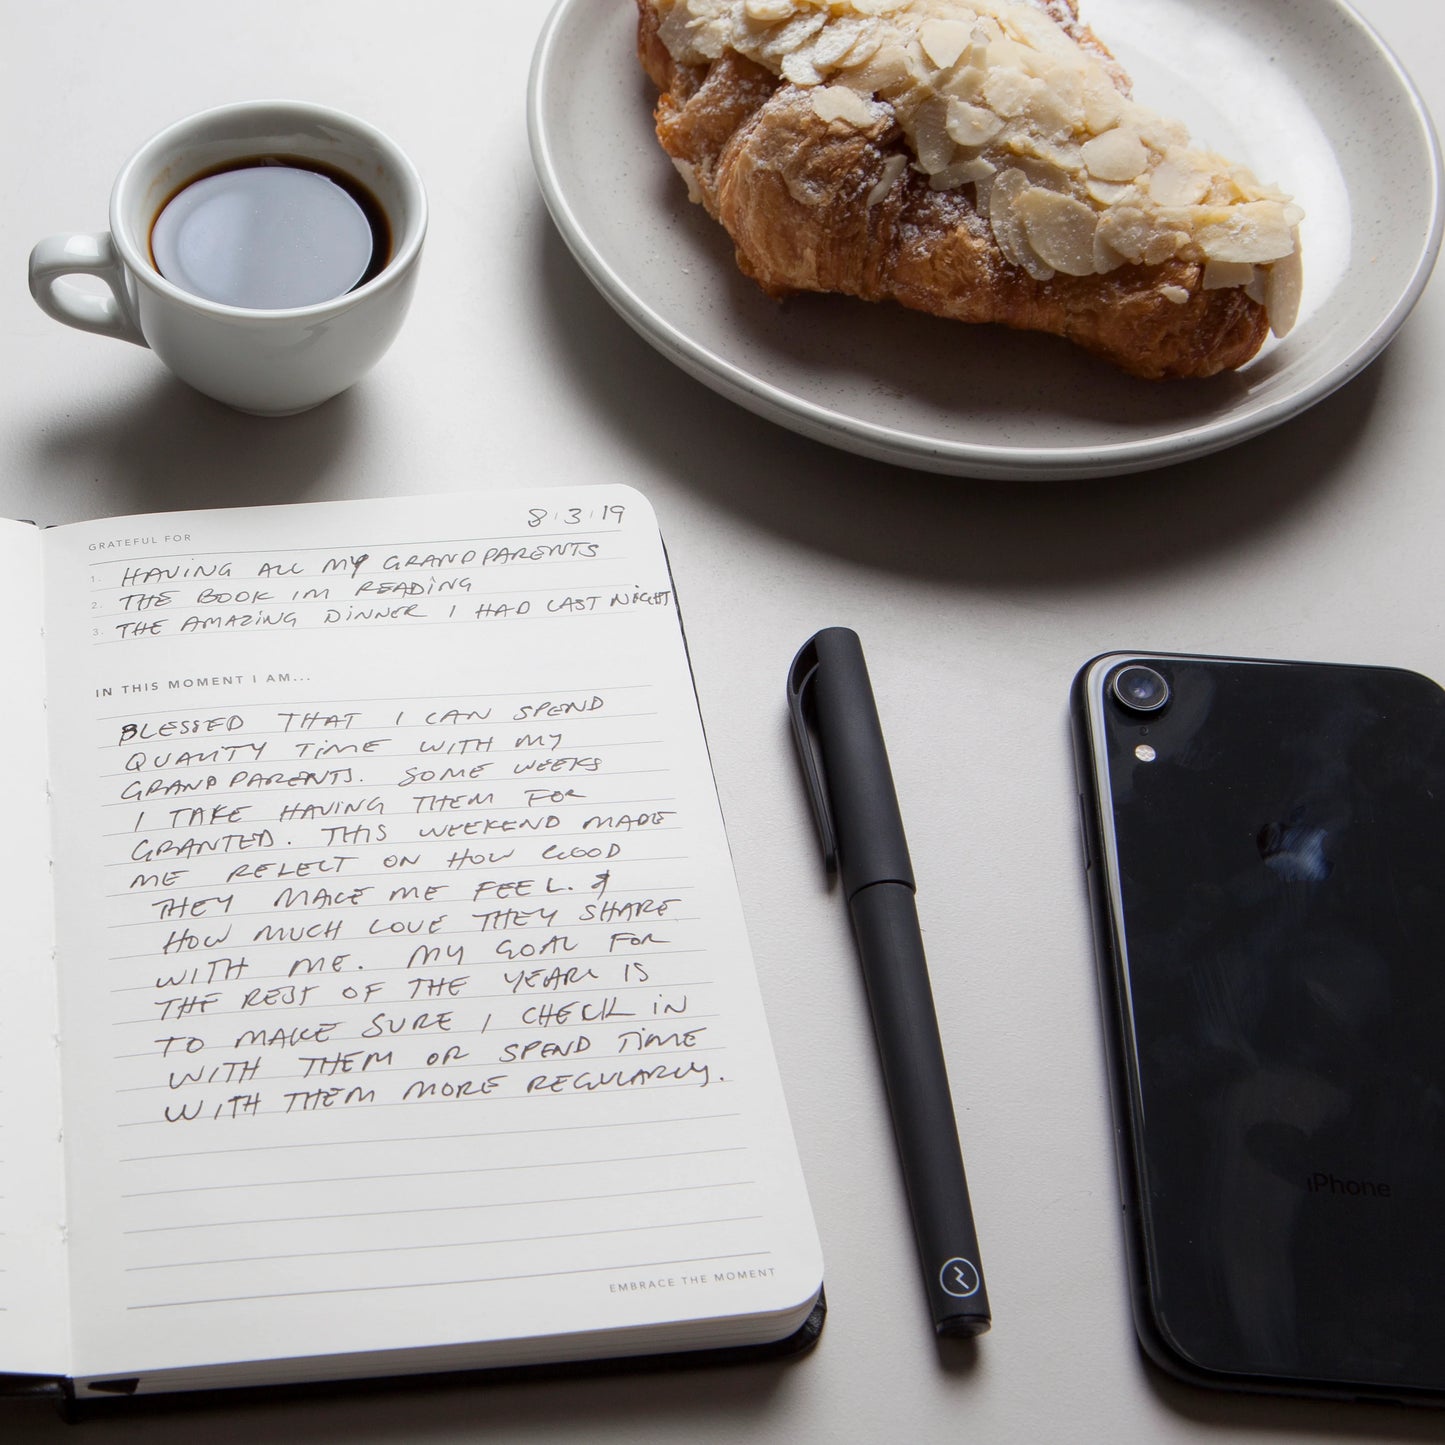 8/3/19
GRATEFUL FOR
1. HAVING ALL MY GRANDPARENTS
2. THE BOOK IM READING
3. THE AMAZING DINNER I HAD LAST NIGHT
IN THIS MOMENT I AM...
BLESSED THAT I CAN SPEND
QUALITY TIME WITH MY
GRANDPARENTS. SOME WEEKS
I TAKE HAVING THEM FOR
GRANTED. THIS WEEKEND MADE
ME RELECT ON HOW GOOD
THEY MAKE ME FEEL. &
HOW MUCH LOVE THEY SHARE
WITH ME. MY GOAL FOR
THE REST OF THE YEAR IS
TO MAKE SURE I CHECK IN
WITH THEM OR SPEND TIME
WITH THEM MORE REGULARLY.
EMBRACE THE MOMENT
iPhone